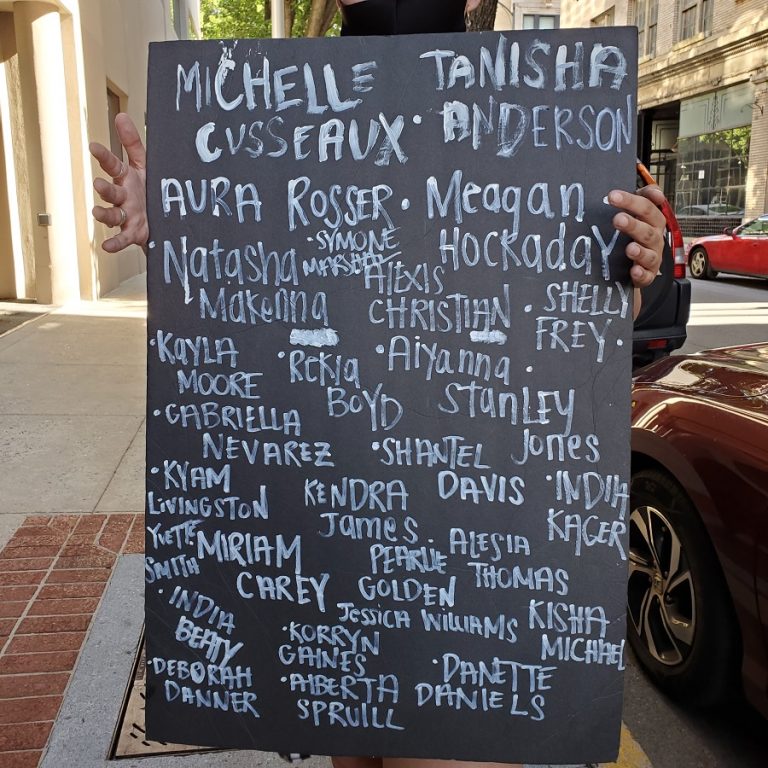 MICHELLE TANISHA
CUSSEAUX · ANDERSON
AURA ROSSER · Meagan
Natasha · SYMONE HOCKADAY
MARSHALL
Makenna ALEXIS
CHRISTIAN · SHELLY
FREY ·
· Kayla · Rekia · Aiyanna ·
MOORE BOYD Stanley
· GABRIELLA Jones
NEVAREZ · SHANTEL
· KYAM KENDRA DAVIS · INDIA
LIVINGSTON James · KAGER
YVETTE MIRIAM PEARLIE · ALESIA
SMITH CAREY GOLDEN THOMAS
· INDIA Jessica Williams KISHA
BEATY · KORRYN MICHAEL
GAINES
· DEBORAH · ALBERTA · DANETTE
DANNER SPRUILL DANIELS